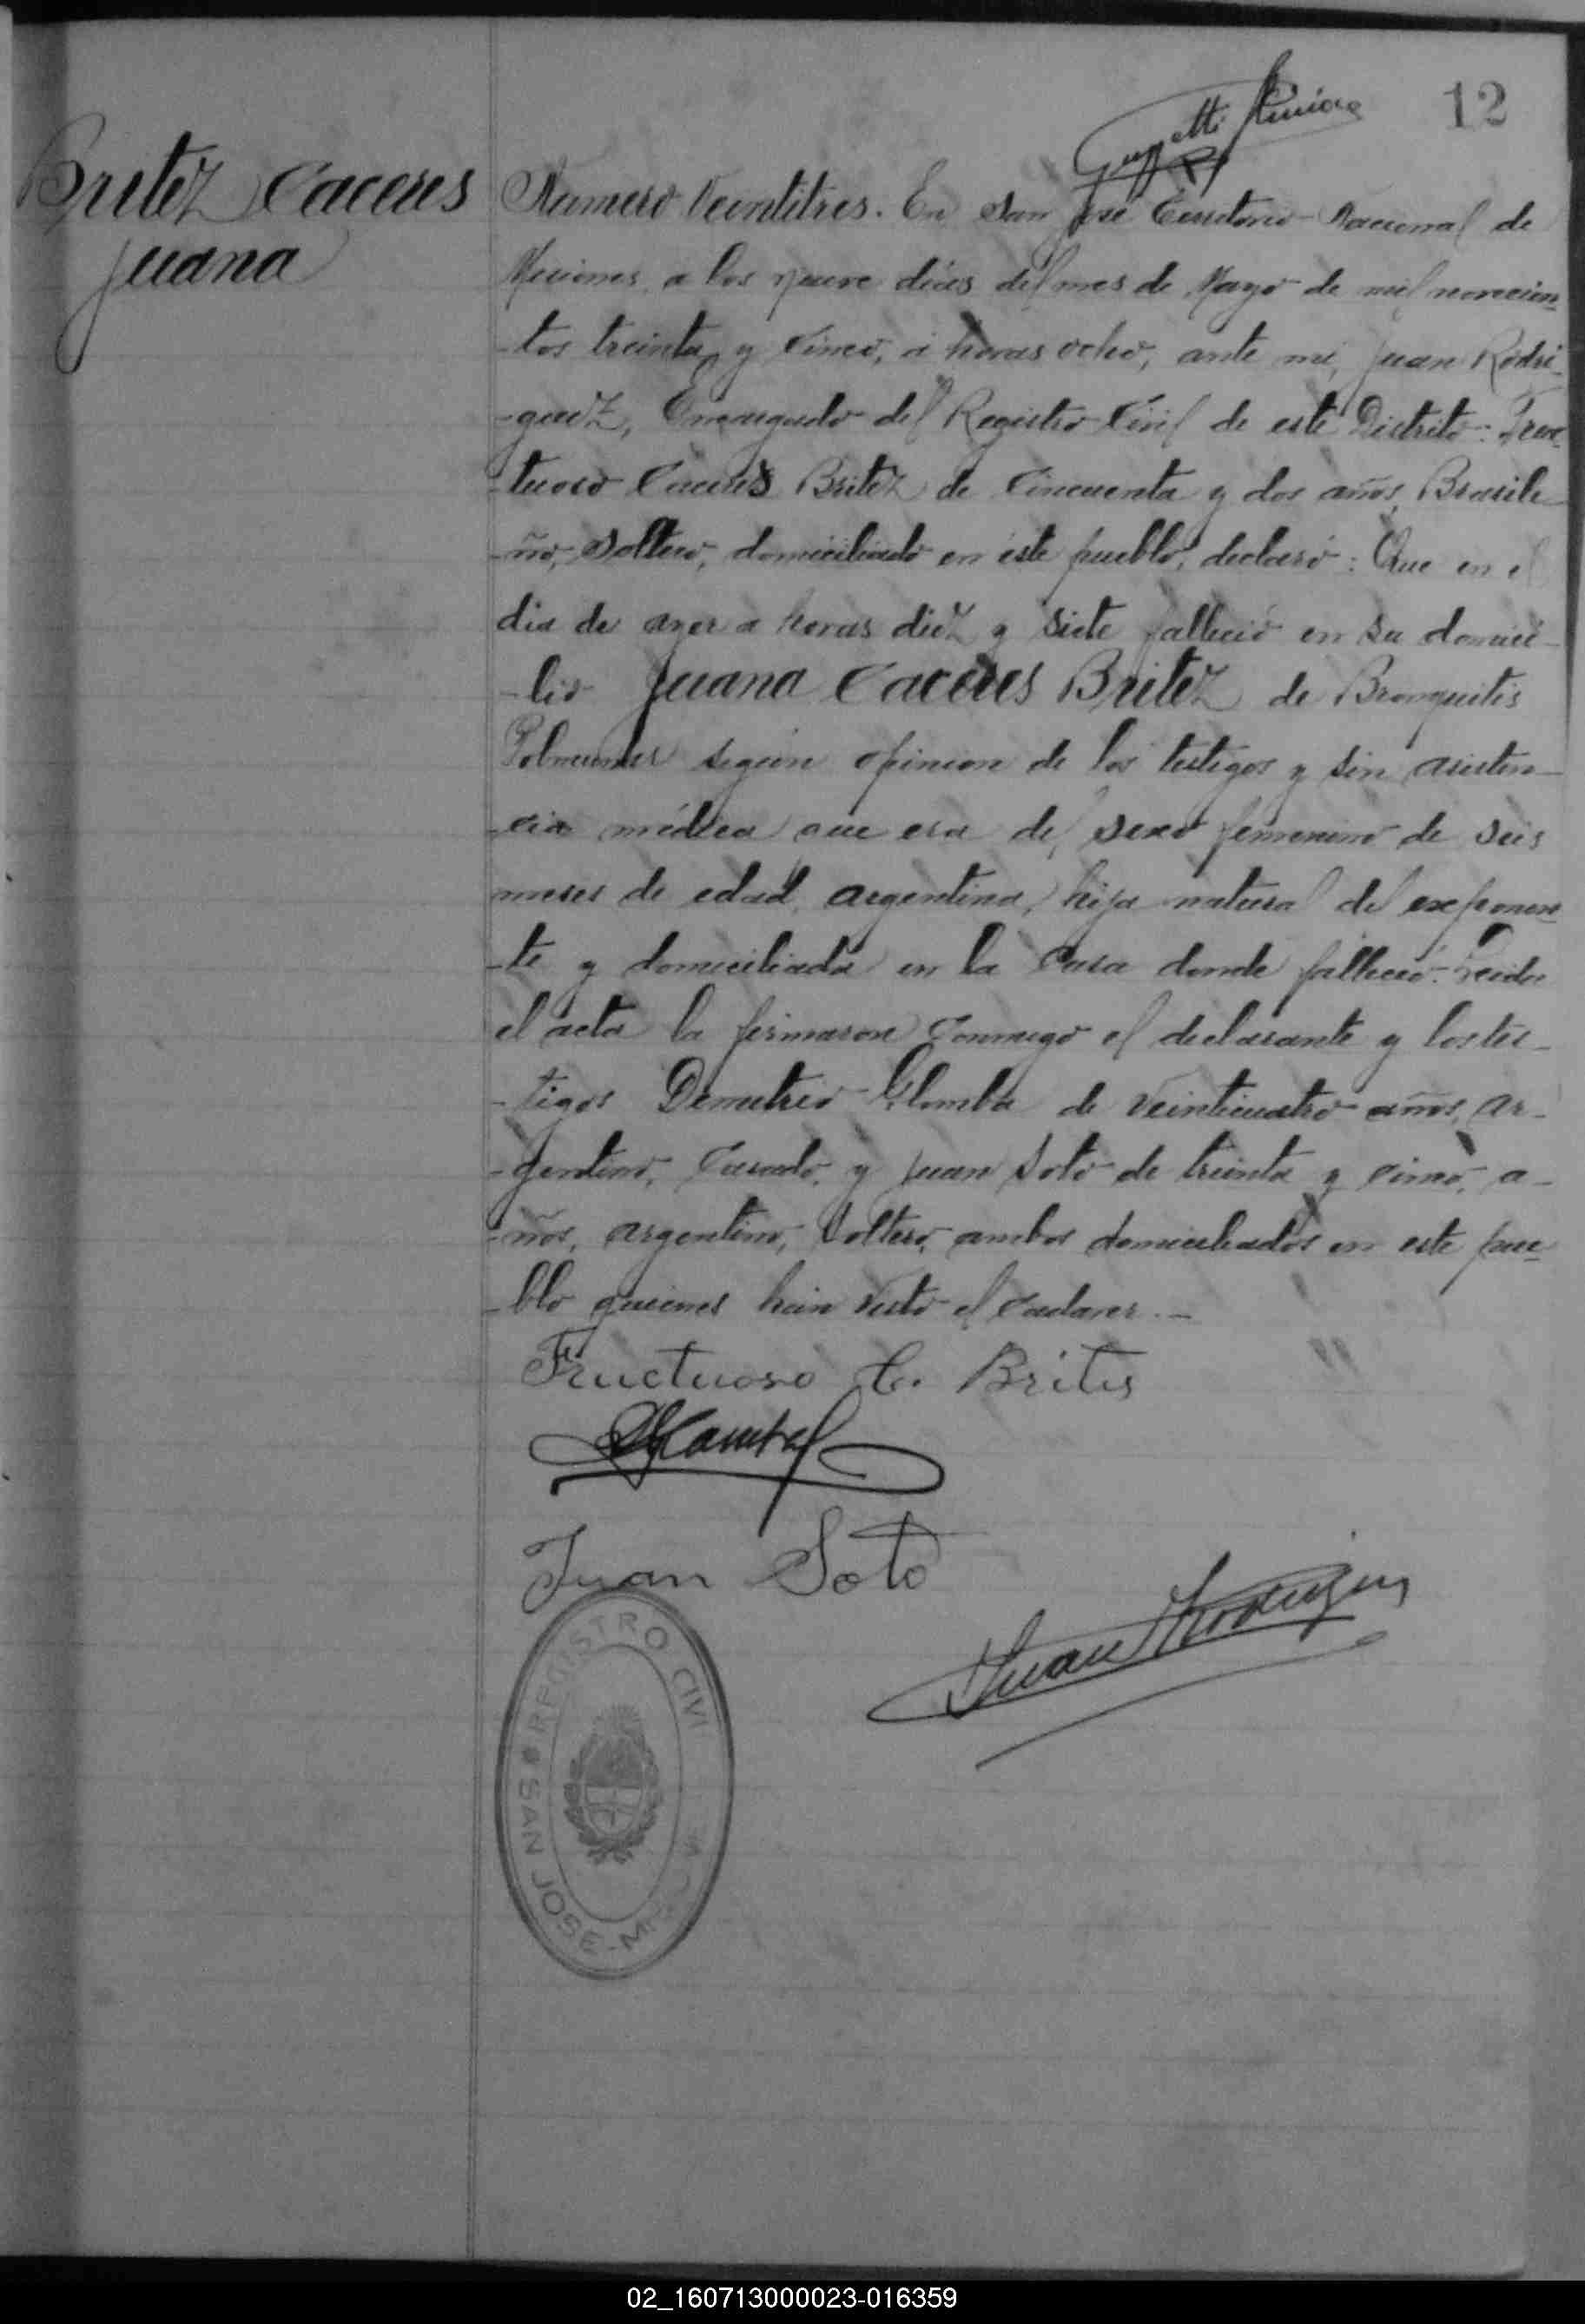 12
Britez Caceres
Juana
Numero Veintitres. En San José Territorio Nacional de
Misiones, a los nueve dias del mes de Mayo de mil novecien-
-tos treinta y cinco, a horas ocho, ante mi, Juan Rodri-
-guez, Encargado del Registro Civil de este Distrito: Fruc-
-tuoso Caceres Britez de cincuenta y dos años, Brasile-
-ño, Soltero, domiciliado en este pueblo, declaró: Que en el
dia de ayer a horas diez y siete falleció en su domici-
-lio Juana Caceres Britez de Bronquitis
según opinion de los testigos y sin asisten-
-cia médica que era del sexo femenino de seis
meses de edad, argentina, hija natural del exponen-
-te y domiciliada en la casa donde falleció. Leida
el acta la firmaron conmigo el declarante y los tes-
-tigos Demetrio Glomba de veinticuatro años, ar-
-gentino, Casado, y Juan Soto de treinta y cinco, a-
-ños, argentino, Soltero, ambos domiciliados en este pue-
-blo quienes han visto el cadaver.-
Fructuoso C. Brites
Juan Soto
Juan Rodriguez
REGISTRO CIVIL
SAN JOSE - MISIONES
02_160713000023-016359